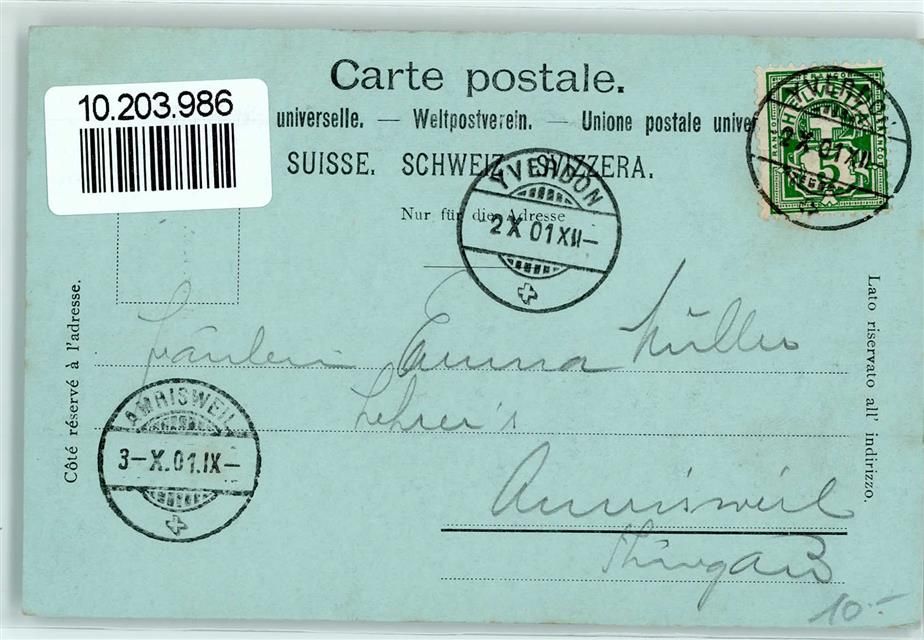 Carte postale.
10.203.986
universelle. — Weltpostverein. — Unione postale univer
SUISSE. SCHWEIZ. SVIZZERA.
Nur für die Adresse
YVERDON
2 X 01 XII–
YVERDON
2 X 01 XII–
HELVETIA
FRANCO
FRANCO
5
Côté réservé à l'adresse.
Lato riservato all' indirizzo.
Fräulein Emma Müller
Lehrer's
Amrisweil
Thurgau
AMRISWEIL
3–X.01.IX–
10.-